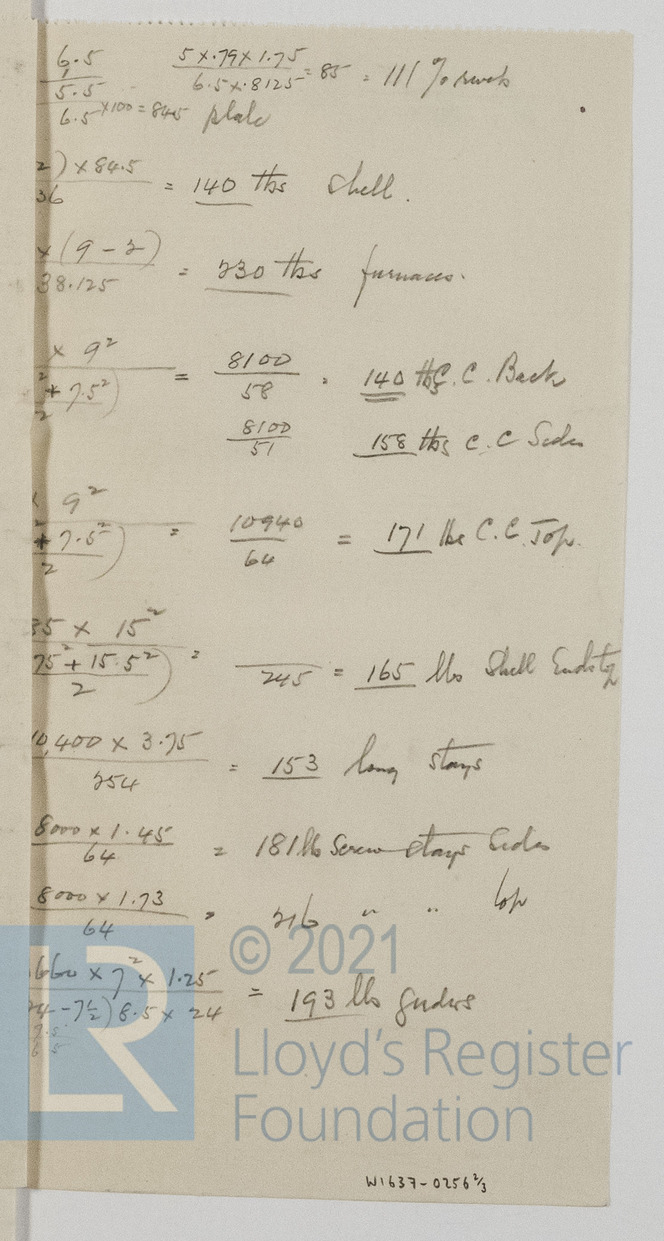 6.5 5 x .79 x 1.75
5.5 6.5 x .8125 = 85 = 111 %
6.5 x 100 = 84.5 plate
2) x 84.5
36 = 140 lbs Shell.
x (9 - 2)
38.125 = 230 lbs furnaces.
x 9²
² + 7.5²) = 8100 / 58 = 140 lbs C. C. Back
2
8100 / 51 158 lbs C. C Sides
x 9²
² + 7.5²) = 10940 / 64 = 171 lbs C. C. Top.
2
85 x 15²
75² + 15.5²) = 245 = 165 lbs Shell Ends top
2
10,400 x 3.75
254 = 153 long stays
8000 x 1.45
64 = 181 lbs Screw stays Sides
8000 x 1.73
64 = 216 " " top
660 x 7² x 1.25
24 - 7½) 8.5 x 24 = 193 lbs girders
7.5
© 2021
LR
Lloyd's Register
Foundation
W1637-0256 2/3